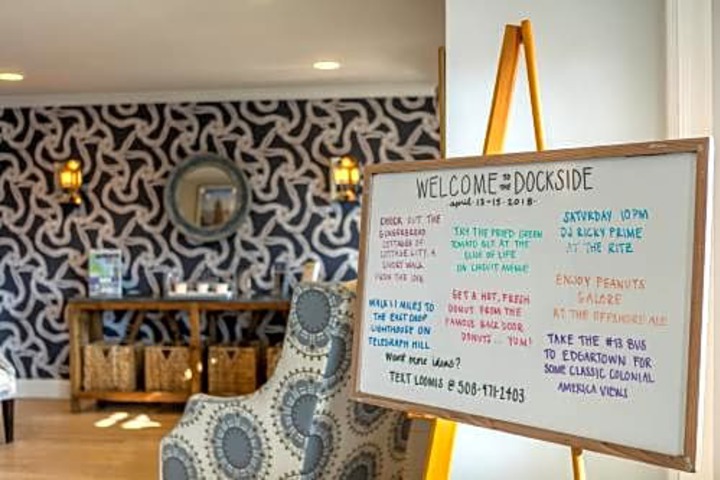 WELCOME TO THE DOCKSIDE
april 13-15 2018
CHECK OUT THE
GINGERBREAD
COTTAGES OF
COTTAGE CITY, A
SHORT WALK
FROM THE INN
TRY THE FRIED GREEN
TOMATO BLT AT THE
SLICE OF LIFE
ON CIRCUIT AVENUE
SATURDAY 10PM
DJ RICKY PRIME
AT THE RITZ
WALK 1.1 MILES TO
THE EAST CHOP
LIGHTHOUSE ON
TELEGRAPH HILL
GET A HOT, FRESH
DONUT FROM THE
FAMOUS BACK DOOR
DONUTS... YUM!
ENJOY PEANUTS
GALORE
AT THE OFFSHORE ALE
TAKE THE #13 BUS
TO EDGARTOWN FOR
SOME CLASSIC COLONIAL
AMERICA VIEWS
Want more ideas?
TEXT LOOMIS @ 508-471-2403